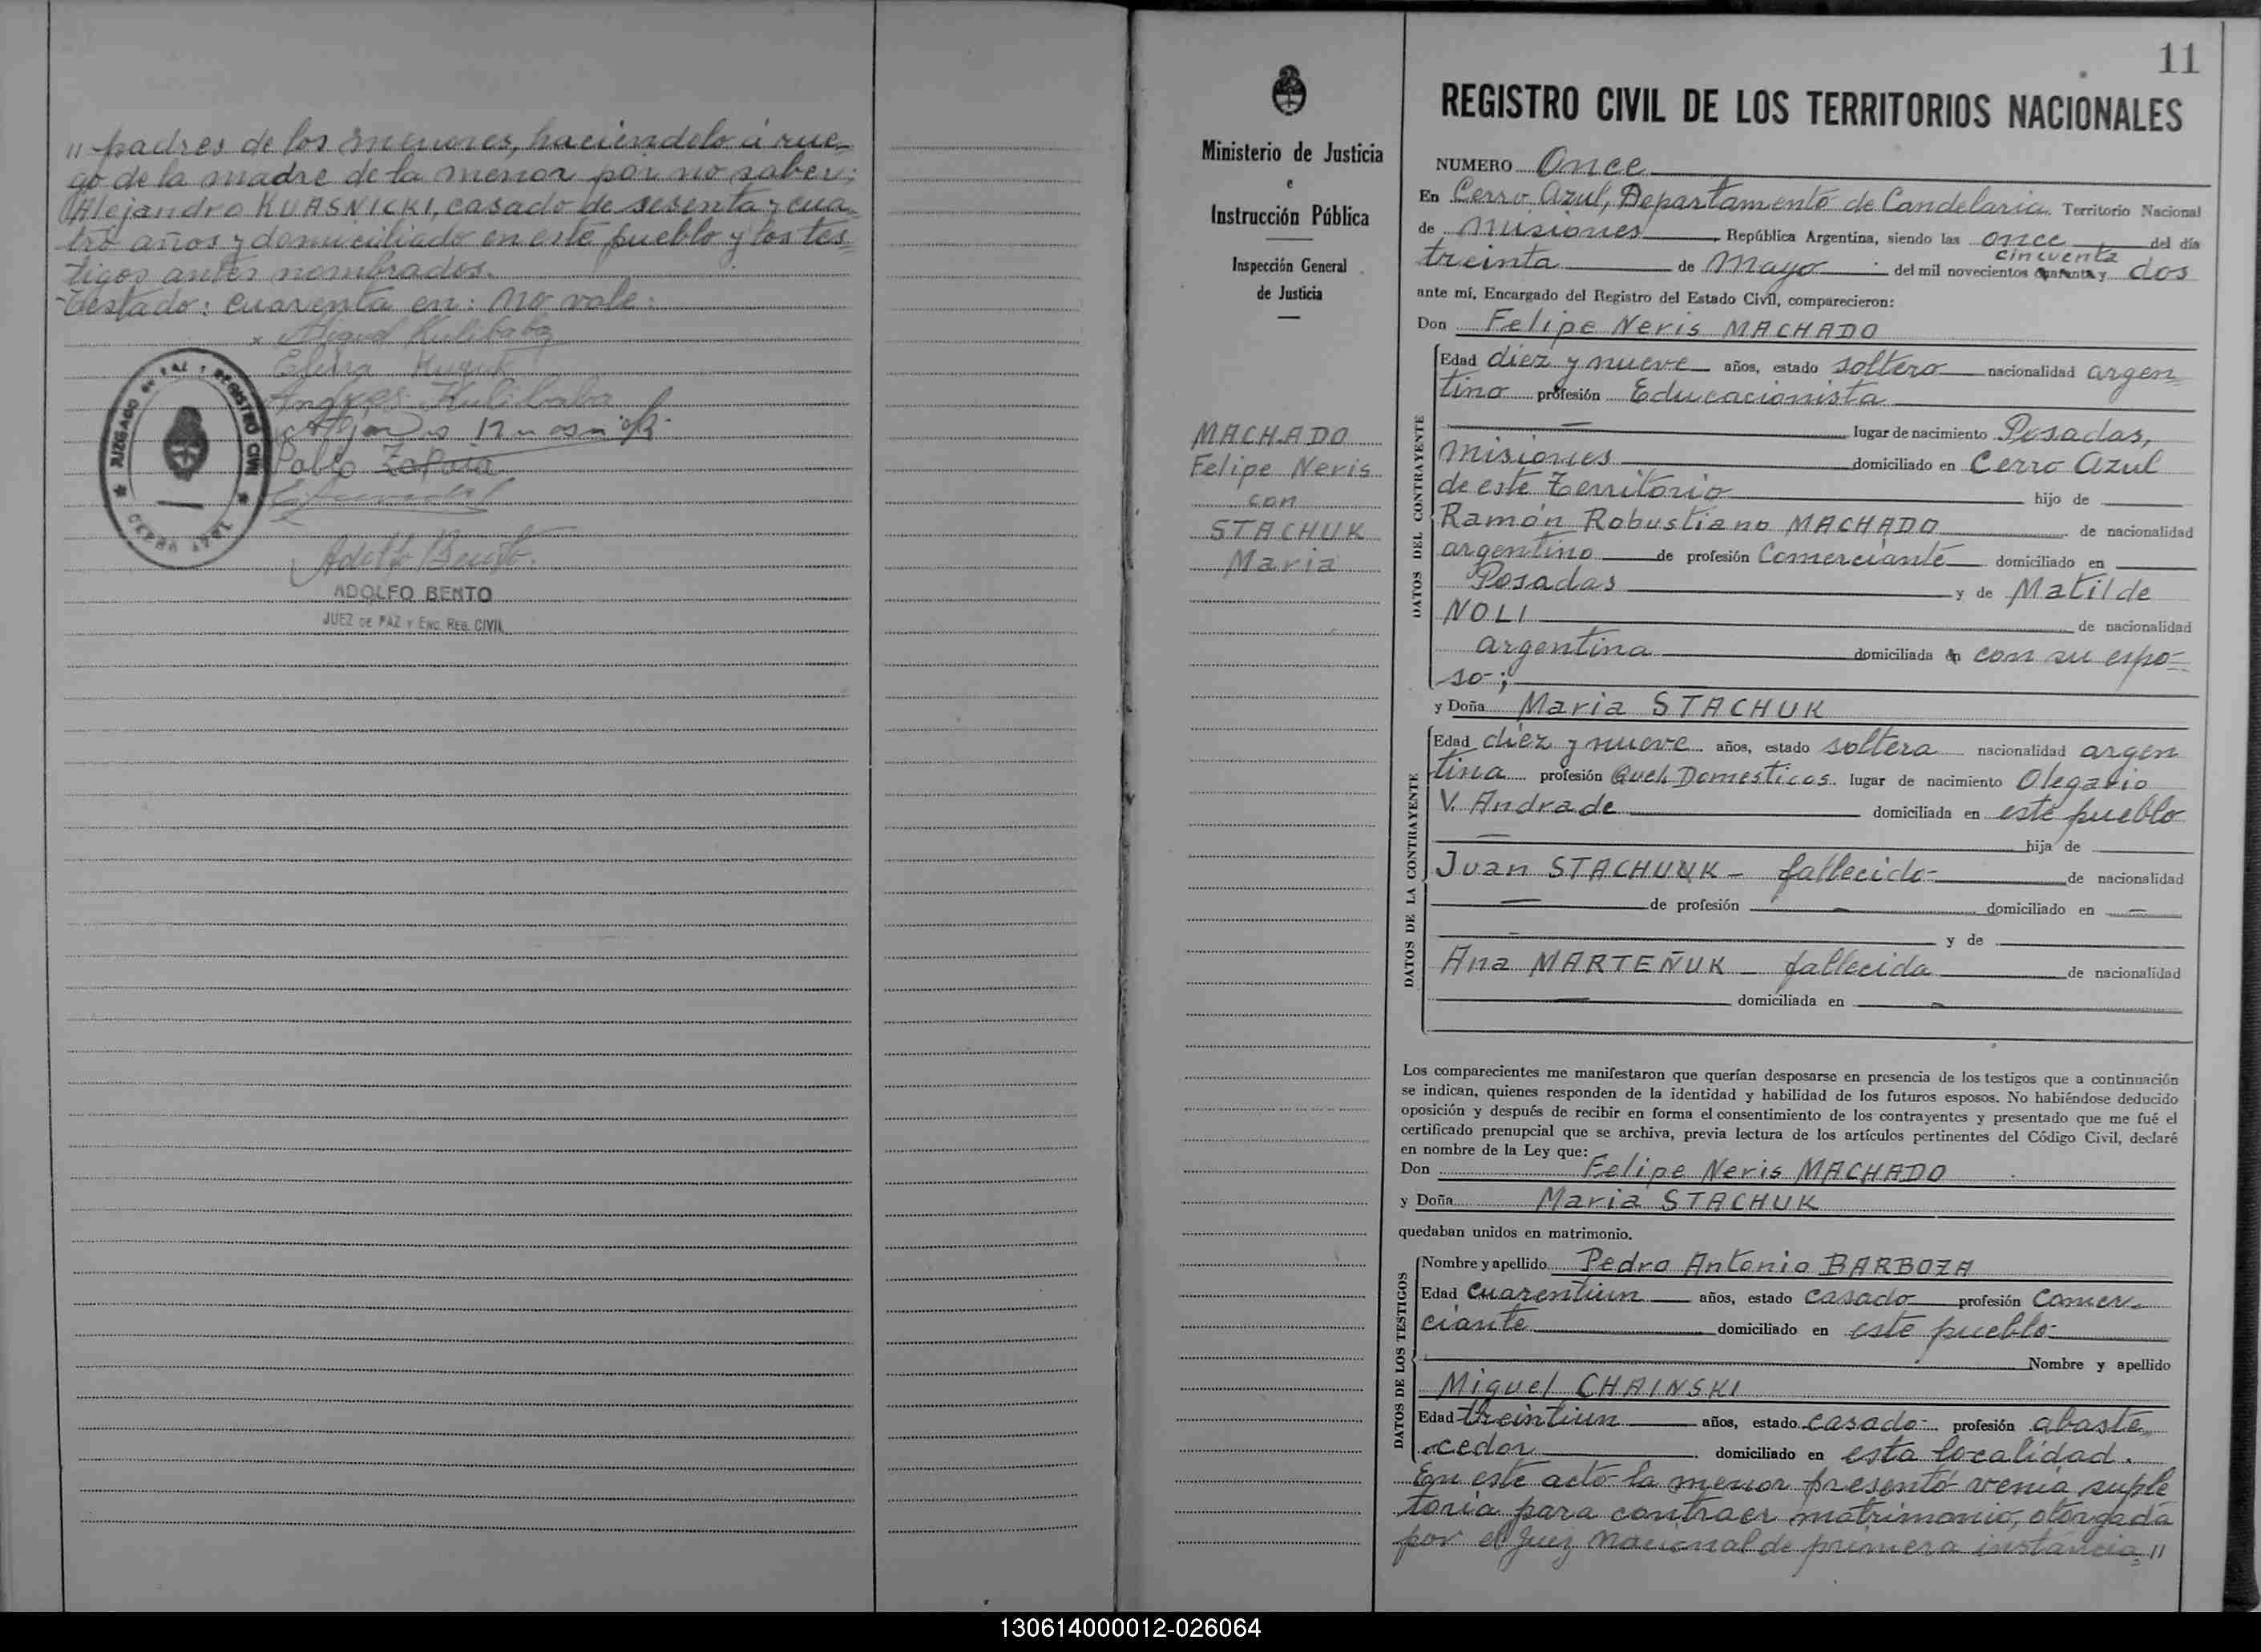 " padres de los menores, haciendolo á rue-
go de la madre de la menor por no saber;
Alejandro KUASNICKI, casado de sesenta y cua-
tro años y domiciliado en este pueblo y los tes-
tigos antes nombrados.
Testado: cuarenta en: No vale:
Kulibaba
Elena
Andres Kulibaba
Pablo Zapaia
JUZGADO DE PAZ Y REGISTRO CIVIL
CERRO AZUL
Adolfo Bento.
ADOLFO BENTO
JUEZ DE PAZ Y ENC. REG. CIVIL
Ministerio de Justicia
e
Instrucción Pública
Inspección General
de Justicia
MACHADO
Felipe Neris
con
STACHUK
Maria
11
REGISTRO CIVIL DE LOS TERRITORIOS NACIONALES
NUMERO Once
En Cerro Azul, Departamento de Candelaria Territorio Nacional
de Misiones, República Argentina, siendo las once del día
cincuenta
treinta de Mayo del mil novecientos cuarenta y dos
ante mí, Encargado del Registro del Estado Civil, comparecieron:
Don Felipe Neris MACHADO
DATOS DEL CONTRAYENTE
Edad diez y nueve años, estado soltero nacionalidad argen-
tino profesión Educacionista
lugar de nacimiento Posadas,
Misiones domiciliado en Cerro Azul
de este Territorio hijo de
Ramón Robustiano MACHADO de nacionalidad
argentino de profesión Comerciante domiciliado en
Posadas y de Matilde
NOLI de nacionalidad
argentina domiciliada en con su espo-
so-;
y Doña Maria STACHUK
DATOS DE LA CONTRAYENTE
Edad diez y nueve años, estado soltera nacionalidad argen
tina profesión Queh. Domesticos. lugar de nacimiento Olegario
V. Andrade domiciliada en este pueblo
hija de
Juan STACHUNK - fallecido- de nacionalidad
de profesión domiciliado en
y de
Ana MARTEÑUK - fallecida de nacionalidad
domiciliada en
Los comparecientes me manifestaron que querían desposarse en presencia de los testigos que a continuación
se indican, quienes responden de la identidad y habilidad de los futuros esposos. No habiéndose deducido
oposición y después de recibir en forma el consentimiento de los contrayentes y presentado que me fué el
certificado prenupcial que se archiva, previa lectura de los artículos pertinentes del Código Civil, declaré
en nombre de la Ley que:
Don Felipe Neris MACHADO
y Doña Maria STACHUK
quedaban unidos en matrimonio.
DATOS DE LOS TESTIGOS
Nombre y apellido Pedro Antonio BARBOZA
Edad cuarentiun años, estado casado profesión comer-
ciante domiciliado en este pueblo
Nombre y apellido
Miguel CHAINSKI
Edad treintiun años, estado casado- profesión abaste-
cedor domiciliado en esta localidad.
En este acto la menor presentó venia suple
toria para contraer matrimonio, otorgada
por el Juez Nacional de primera instancia "
130614000012-026064